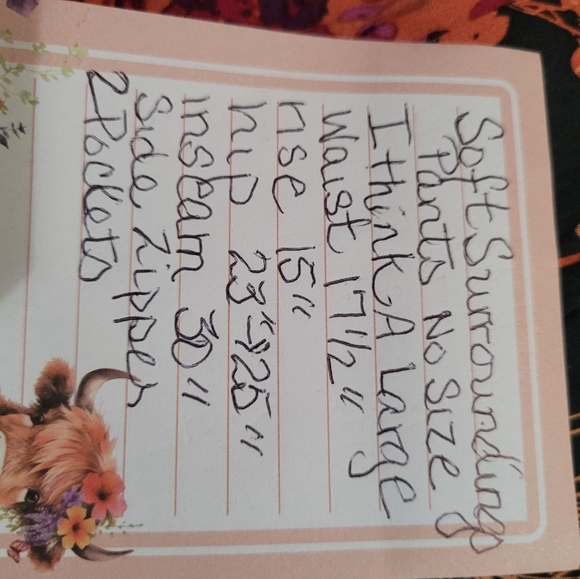 Soft Surroundings
Pants No Size
I think A Large
Waist 17 1/2"
rise 15"
hip 23"->25"
inseam 30"
Side Zipper
2 Pockets